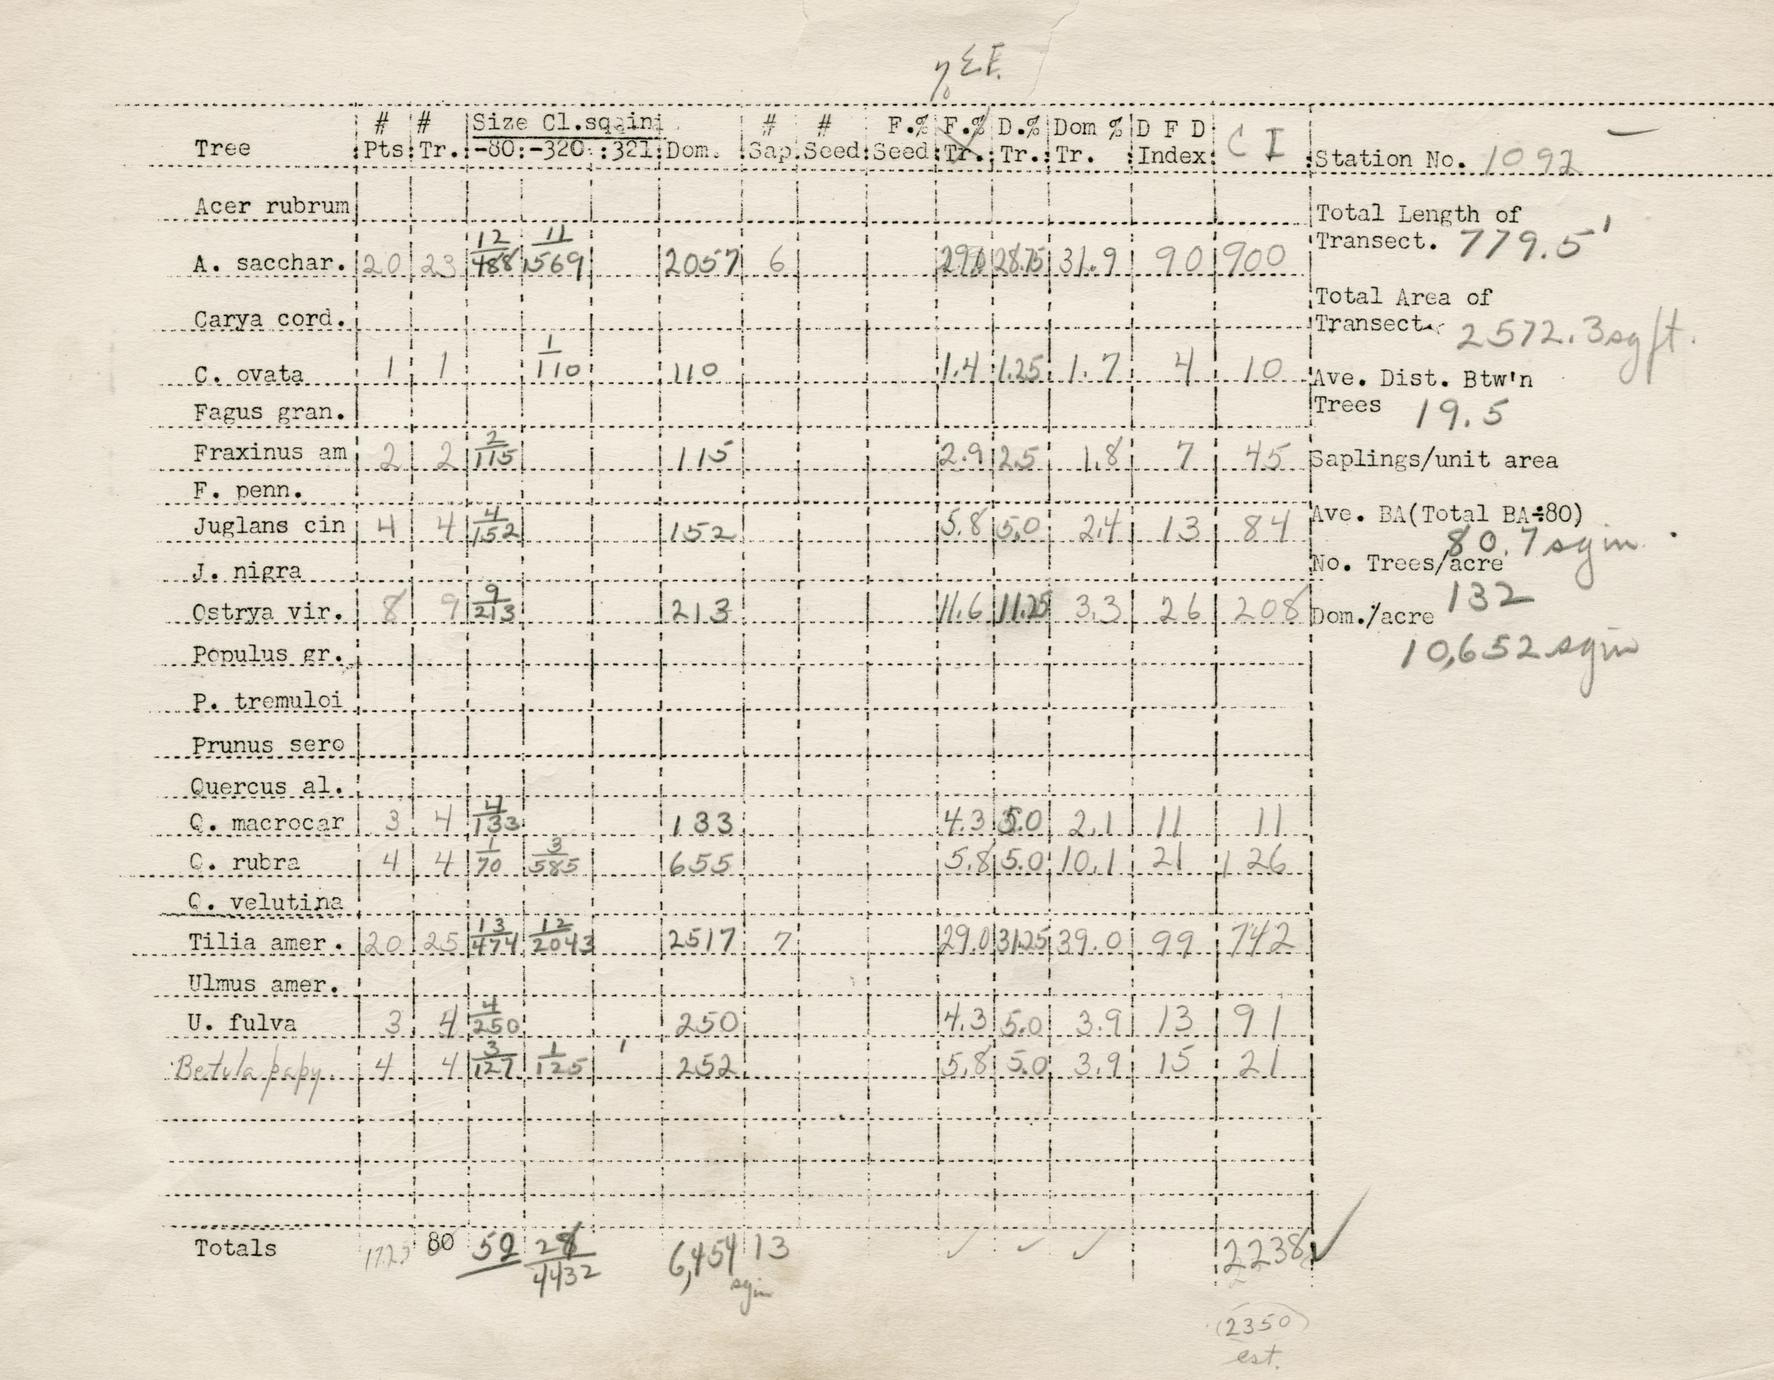 % Σ F.
# # Size Cl.sq.in. # # F.% F.% D.% Dom % D F D C I
Tree Pts. Tr. -80: -320 :321 Dom. Sap. Seed. Seed Tr. Tr. Tr. Index Station No. 1092
Acer rubrum
Total Length of
Transect. 779.5'
12 11
A. sacchar. 20 23 488 1569 2057 6 29.0 28.75 31.9 90 900
Total Area of
Carya cord.
Transect. 2572.3 sq ft.
1
C. ovata 1 1 110 110 1.4 1.25 1.7 4 10
Ave. Dist. Btw'n
Trees 19.5
Fagus gran.
2
Fraxinus am 2 2 115 115 2.9 2.5 1.8 7 45
Saplings/unit area
F. penn.
4
Juglans cin 4 4 152 152 5.8 5.0 2.4 13 84
Ave. BA(Total BA÷80)
80.7 sq in.
J. nigra
No. Trees/acre
132
9
Ostrya vir. 8 9 213 213 11.6 11.25 3.3 26 208
Dom./acre
10,652 sq in
Populus gr.
P. tremuloi
Prunus sero
Quercus al.
4
Q. macrocar 3 4 133 133 4.3 5.0 2.1 11 11
1 3
Q. rubra 4 4 70 585 655 5.8 5.0 10.1 21 126
Q. velutina
13 12
Tilia amer. 20 25 474 2043 2517 7 29.0 31.25 39.0 99 742
Ulmus amer.
4
U. fulva 3 4 250 250 4.3 5.0 3.9 13 91
3 1
Betula papy. 4 4 127 125 252 5.8 5.0 3.9 15 21
Totals 80 52 28 6,454 13 2238
4432 sq in
(2350)
est.